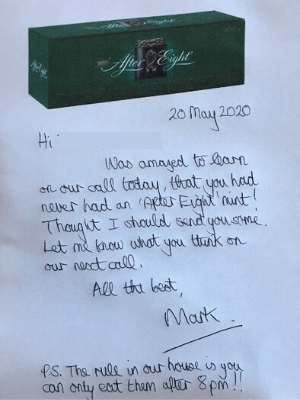 After Eight
20 May 2020
Hi
Was amazed to learn
on our call today, that you had
never had an 'After Eight' mint!
Thought I should send you some.
Let me know what you think on
our next call.
All the best,
Mark.
P.S. The rule in our house is you
can only eat them after 8pm!!